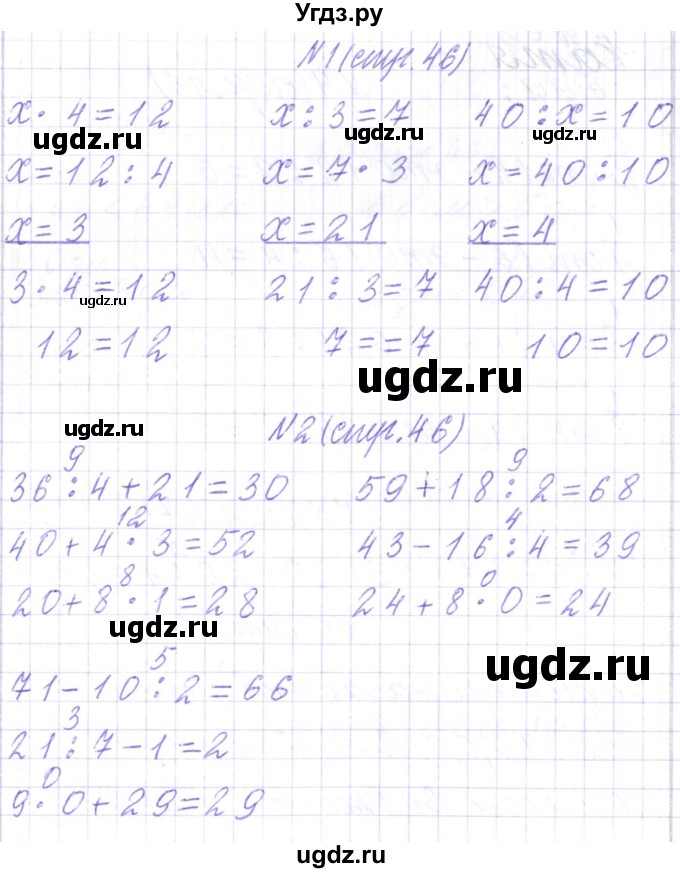 Угдз.ру
N1(стр.46)
x·4=12 x:3=7 40:x=10
ugdz.ru ugdz.ru ugdz.ru
x=12:4 x=7·3 x=40:10
x=3 x=21 x=4
3·4=12 21:3=7 40:4=10
ugdz.ru
12=12 7==7 10=10
ugdz.ru
ugdz.ru N2(стр.46)
9 9
36:4+21=30 59+18:2=68
12 4
40+4·3=52 43-16:4=39
8 0
20+8·1=28 24+8·0=24
ugdz.ru
ugdz.ru
5
71-10:2=66
3
21:7-1=2
0
9·0+29=29
ugdz.ru